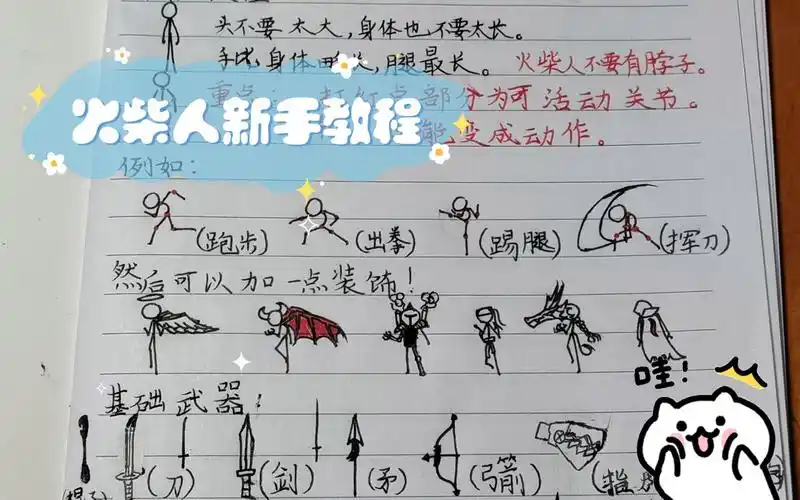 头不要太大,身体也不要太长。
手比身体,腿最长。火柴人不要有脖子。
重点:打红点部分为可活动关节。
能变成动作。
火柴人新手教程
例如:
(跑步) (出拳) (踢腿) (挥刀)
然后可以加一点装饰!
哇!
基础武器:
(刀) (剑) (矛) (弓箭)